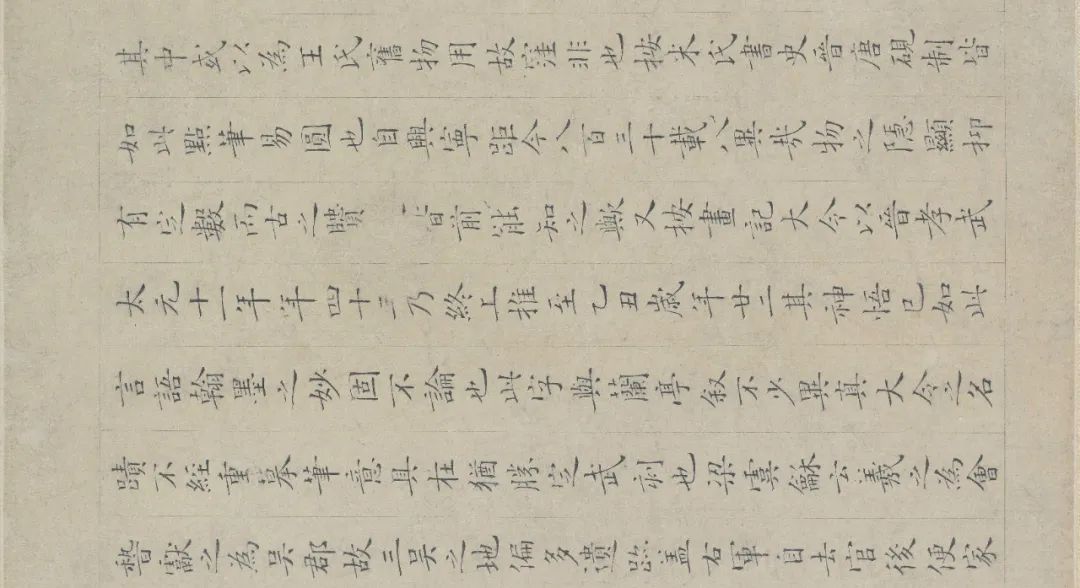 其中或以為王氏舊物用故窪非也按米氏書史晉唐硯制皆
如此點筆易圓也自興寧距今八百三十載八異哉物之隱顯抑
有定數而古之皆前能知之歟又按畫記大令以晉孝武
太元十一年年四十三乃終上推至乙丑歲年廿二其神悟已如此
言語翰墨之妙固不論也此字與蘭亭叙不少異真大令之名
蹟不經重摹筆意具在猶勝定武刻也梁虞龢云羲之為會
稽獻之為吳郡故三吳之地偏多遺跡盖右軍自去官後便家